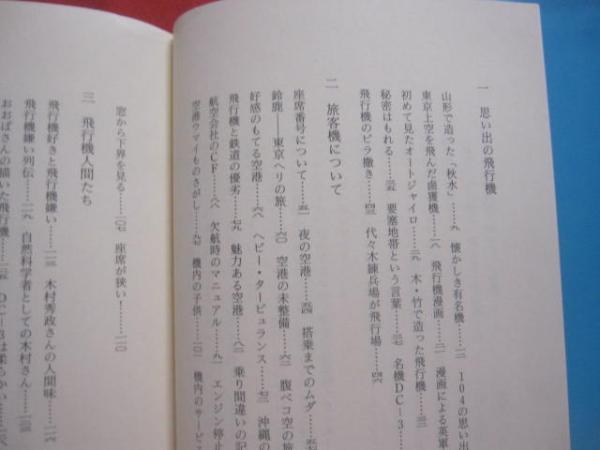 一　思い出の飛行機
山形で造った「秋水」……九　懐かしき有名機……一二　104の思い出
東京上空を飛んだ鹵獲機……一八　飛行機漫画……二一　漫画による英軍
初めて見たオートジャイロ　木・竹で造った飛行機……三三
秘密はもれる……三六　要塞地帯という言葉……三七　名機DC-3
飛行機のビラ撒き……四三　代々木練兵場が飛行場……四六
二　旅客機について
座席番号について……五一　夜の空港……五四　搭乗までのムダ
鈴鹿――東京ヘリの旅……六〇　空港の未整備……六三　腹ペコ空の旅
好感のもてる空港……六八　ヘビー・タービュランス……七三　沖縄の
飛行機と鉄道の優劣……七九　魅力ある空港……八二　乗り間違いの記
航空会社のCF……八八　欠航時のマニュアル……九一　エンジン停止
空港ウマイものさがし……九七　機内の子供……一〇一　機内のサービ
窓から下界を見る……一〇七　座席が狭い！……一一〇
三　飛行機人間たち
飛行機好きと飛行機嫌い……　木村秀政さんの人間味……一一六
飛行機嫌い列伝……一一九　自然科学者としての木村さん……一二三
おおばさんの描いた飛行機……一二五　DC-8は柔らかい……一三〇